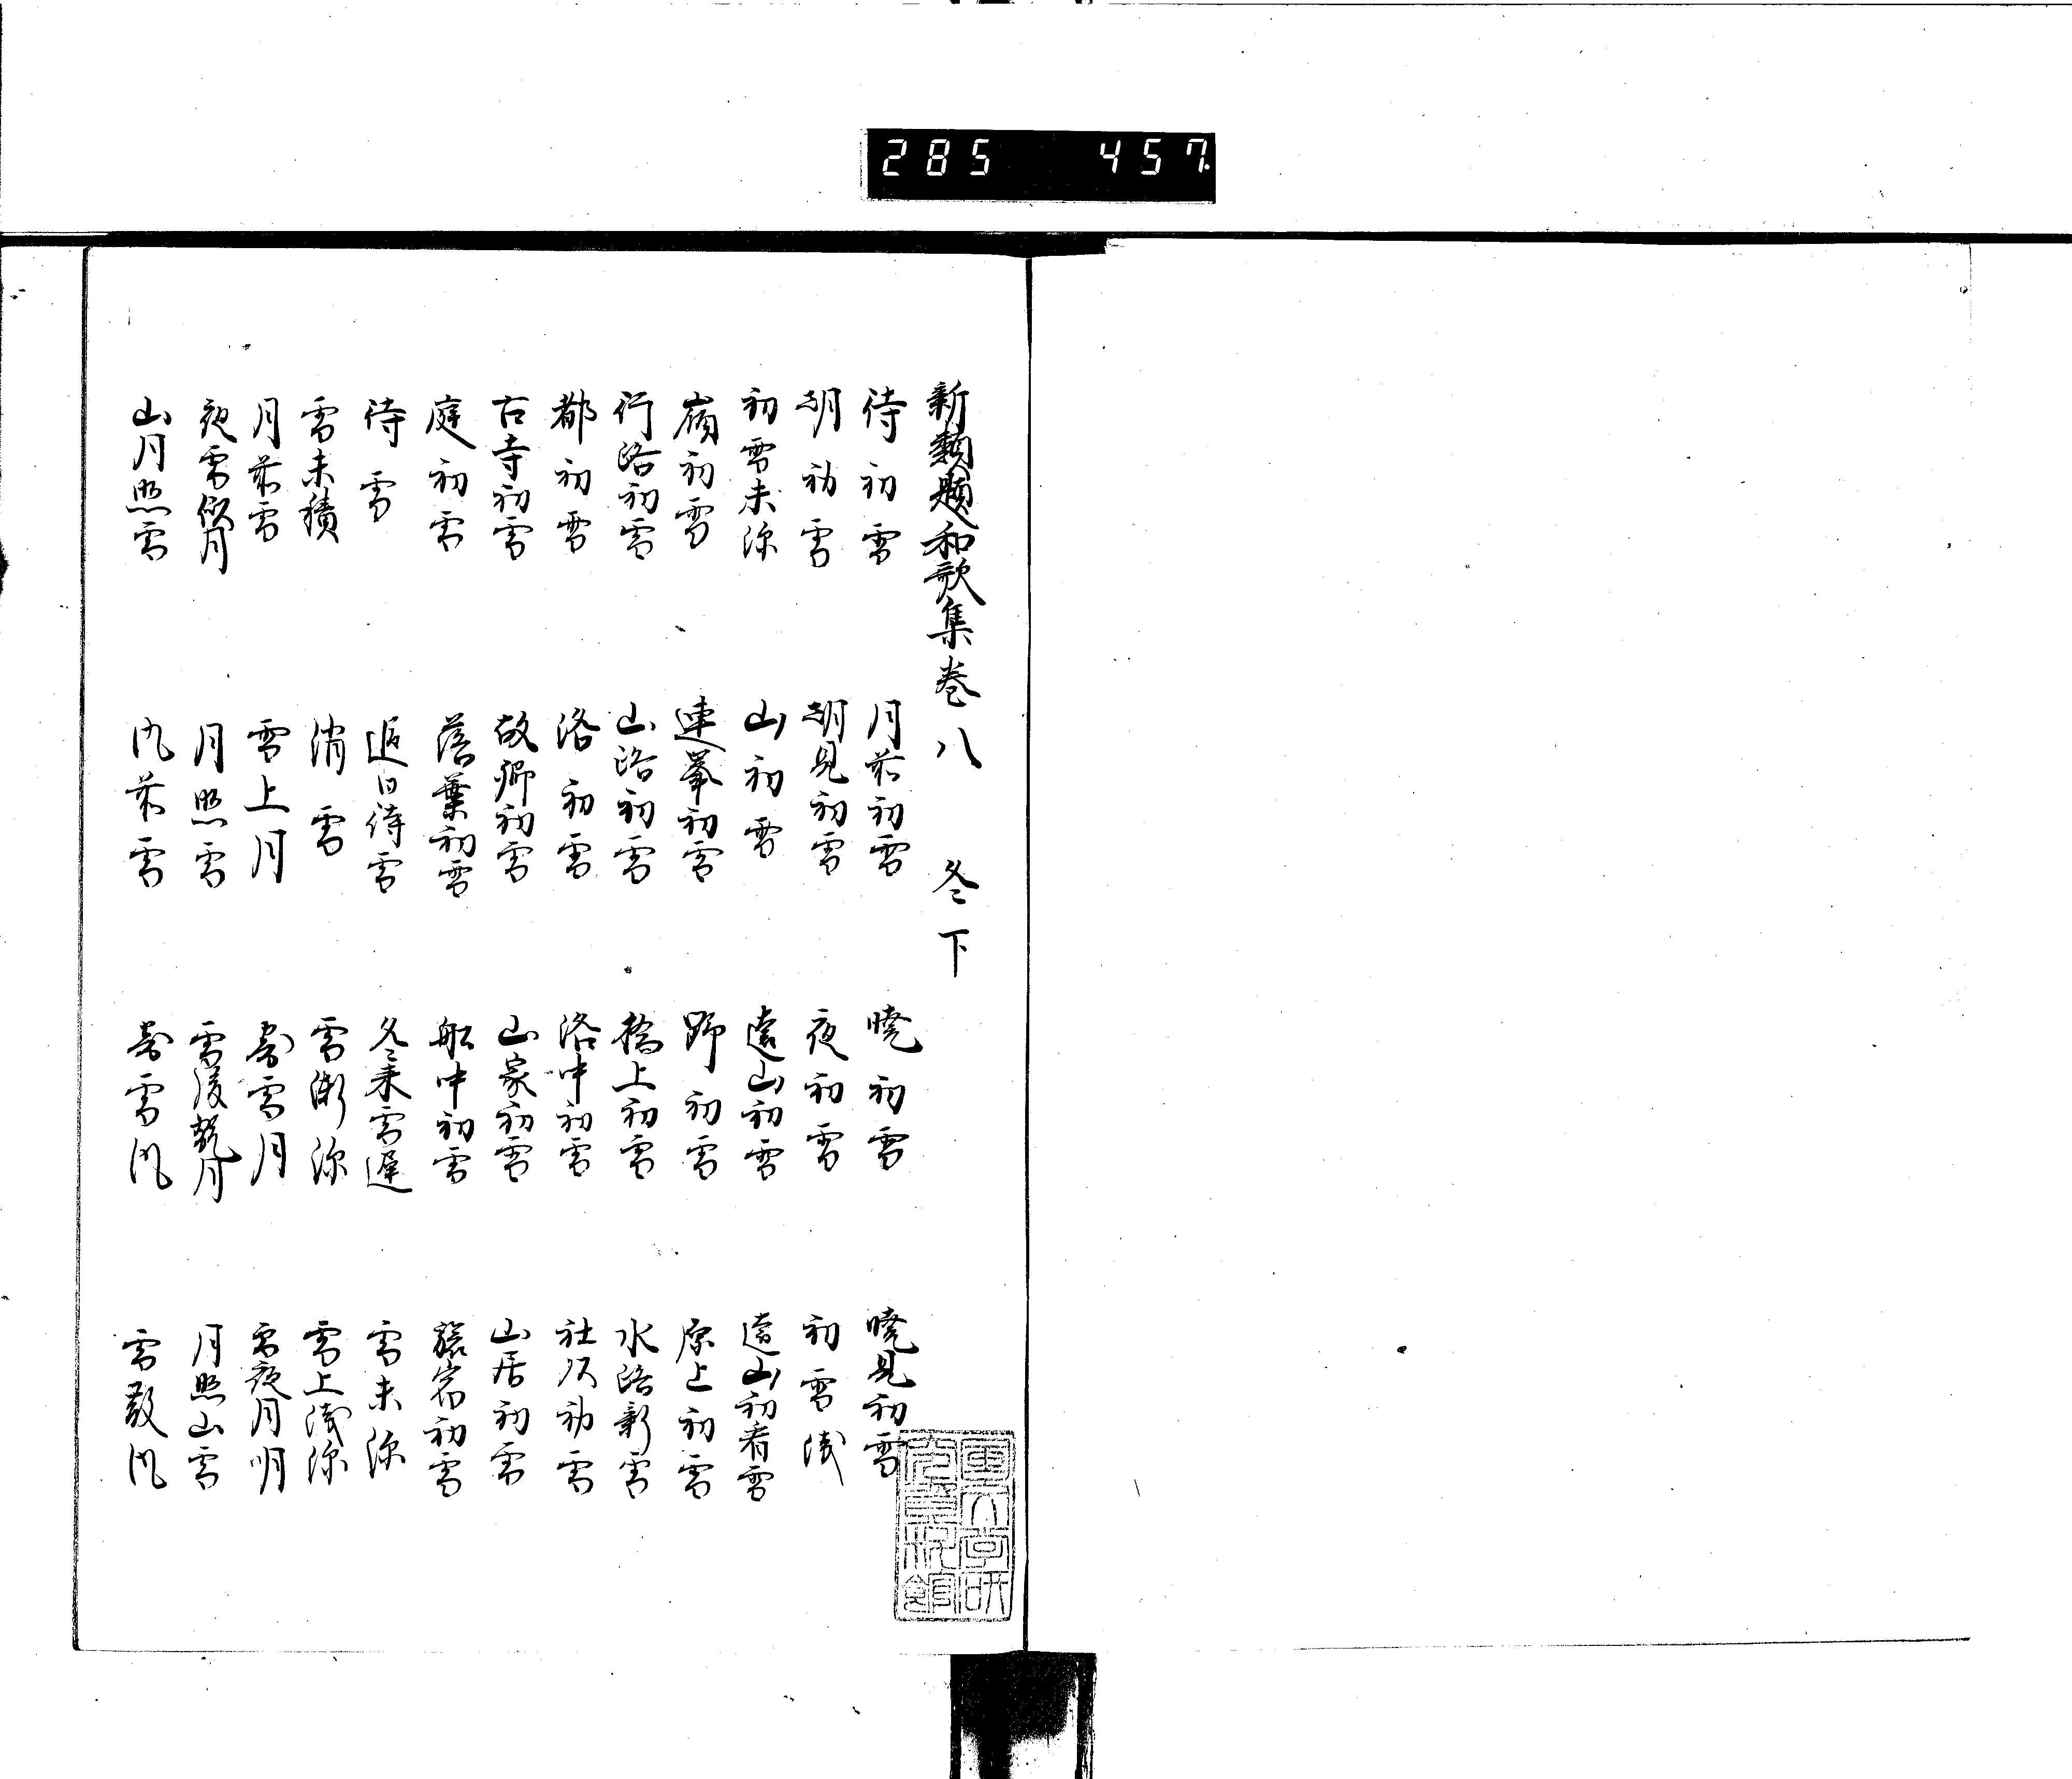 285 457
新類題和歌集巻八 冬下
待初雪 月前初雪 暁初雪 暁見初雪
朝初雪 朝見初雪 夜初雪 初雪浅
初雪未深 山初雪 遠山初雪 遠山初看雪
嶺初雪 連峯初雪 野初雪 原上初雪
行路初雪 山路初雪 橋上初雪 水路新雪
都初雪 洛初雪 洛中初雪 社頭初雪
古寺初雪 故郷初雪 山家初雪 山居初雪
庭初雪 落葉初雪 船中初雪 旅宿初雪
待雪 逐日待雪 冬来雪遅 雪未深
雪未積 消雪 雪漸深 雪上浅深
月前雪 雪上月 寄雪月 雪夜月明
夜雪似月 月照雪 雪後翫月 月照山雪
山月照雪 風前雪 寄雪風 雪散風